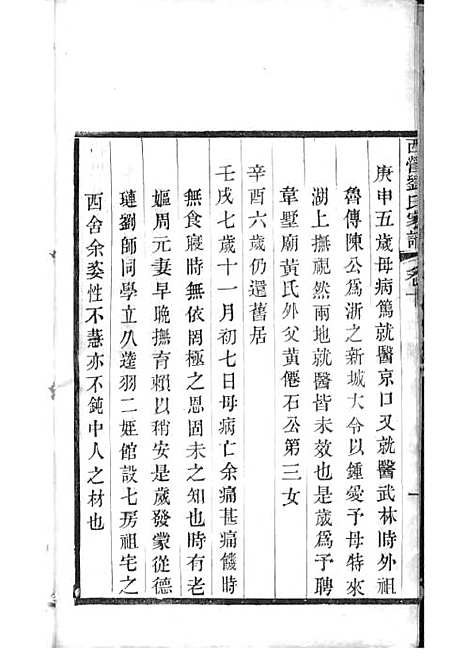 西營劉氏家譜 卷十
庚申五歲母病篤就醫京口又就醫武林時外祖
魯傳陳公爲浙之新城大令以鍾愛予母特來
湖上撫視然兩地就醫皆未效也是歲爲予聘
韋墅廟黃氏外父黃僊石公第三女
辛酉六歲仍還舊居
壬戌七歲十一月初七日母病亡余痛甚痛饑時
無食寢時無依罔極之恩固未之知也時有老
嫗周元妻早晚撫育賴以稍安是歲發蒙從德
璉劉師同學立八逵羽二姪館設七房祖宅之
西舍余姿性不慧亦不鈍中人之材也